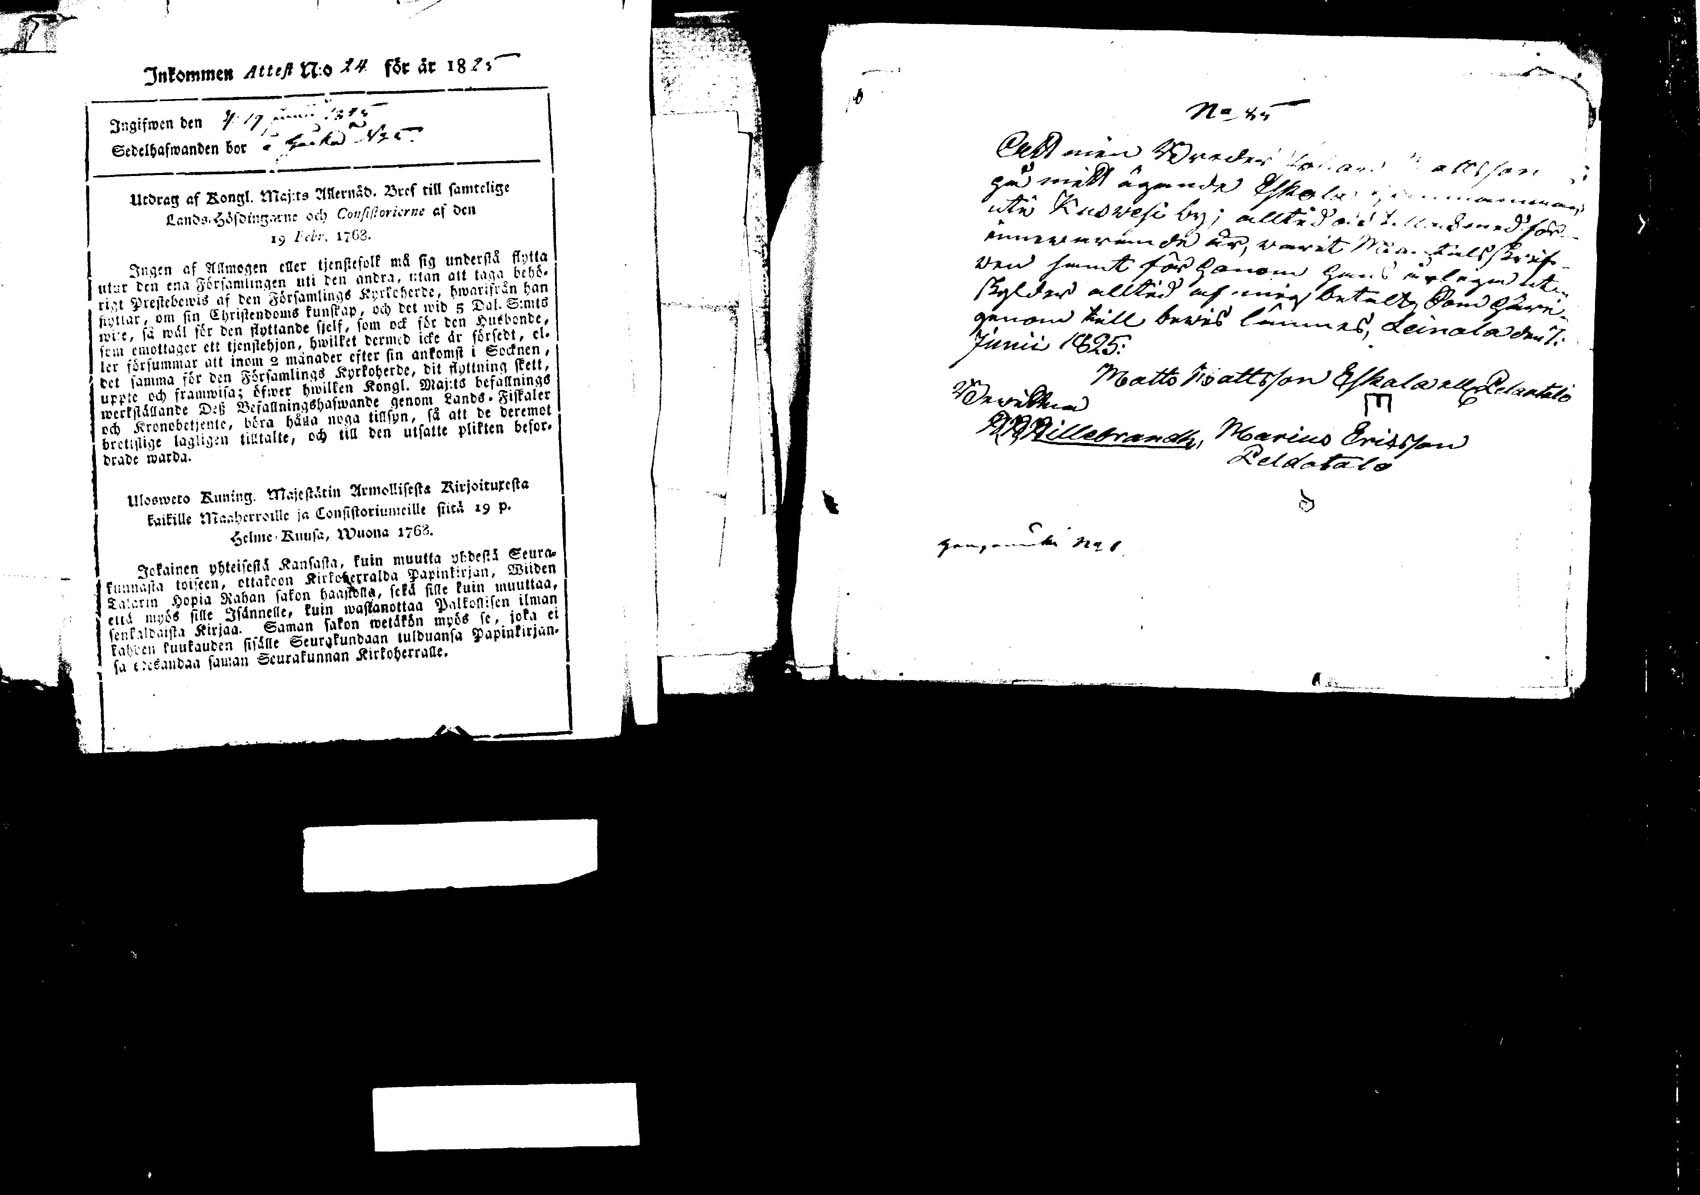 Inkommen Attest N:o 24 för år 1825
Ingifwen den 19 1825
Sedelhafwanden bor å
Utdrag af Kongl. Maj:ts Allernåd. Bref till samtelige
Lands-Höfdingarne och Consistorierne af den
19 Febr. 1768.
Ingen af Allmogen eller tjenstefolk må sig understå flytta
utur den ena Församlingen uti den andra, utan att taga behö-
rigt Prestebewis af den Församlings Kyrkoherde, hwarifrån han
flyttar, om sin Christendoms kunskap, och det wid 5 Dal. S:mts
wite, så wäl för den flyttande sjelf, som ock för den Husbonde,
som emottager ett tjenstehjon, hwilket dermed icke är försedt, el-
ler försummar att inom 2 månader efter sin ankomst i Socknen,
det samma för den Församlings Kyrkoherde, dit flyttning skett,
uppte och framwisa; öfwer hwilken Kongl. Maj:ts befallnings
werkställande Deß Befallningshafwande genom Lands-Fiskaler
och Kronobetjente, böra hålla noga tillsyn, så att de deremot
brottslige lagligen tilltalte, och till den utsatte plikten befor-
drade warda.
Uloswéto Kuning. Majestätin Armollisesta Kirjoituxesta
kaikille Maaherroille ja Consistoriumeille siitä 19 p.
Helme-Kuusa, Wuona 1768.
Jokainen yhteisestä Kansasta, kuin muutta yhdestä Seura-
kunnasta toiseen, ottakoon Kirkoherralda Papinkirjan, Wiiden
Talarin Hopia Rahan sakon haastolla, sekä sille kuin muuttaa,
että myös sille Isännelle, kuin wastanottaa Palkollisen ilman
senkaldaista Kirjaa. Saman sakon wetäkön myös se, joka ei
kahden kuukauden sisälle Seurakundaan tulduansa Papinkirjan-
sa edesandaa saman Seurakunnan Kirkoherralle.
No 85
Att min Broder Johan Mattsson
på mitt ägande Eskola hemmaman
uti Kuswesi by; alltid
innewarande år, warit Mantalsskrif-
wen samt för honom hans
skylder alltid af mig betalt, Som häri-
genom till bewis lämnas, Leinola den 7:
Junii 1825:
Matts Mattsson Eskola
Bewittna
Hillebrandt, Marius Ericsson
Peldotalo
No 1